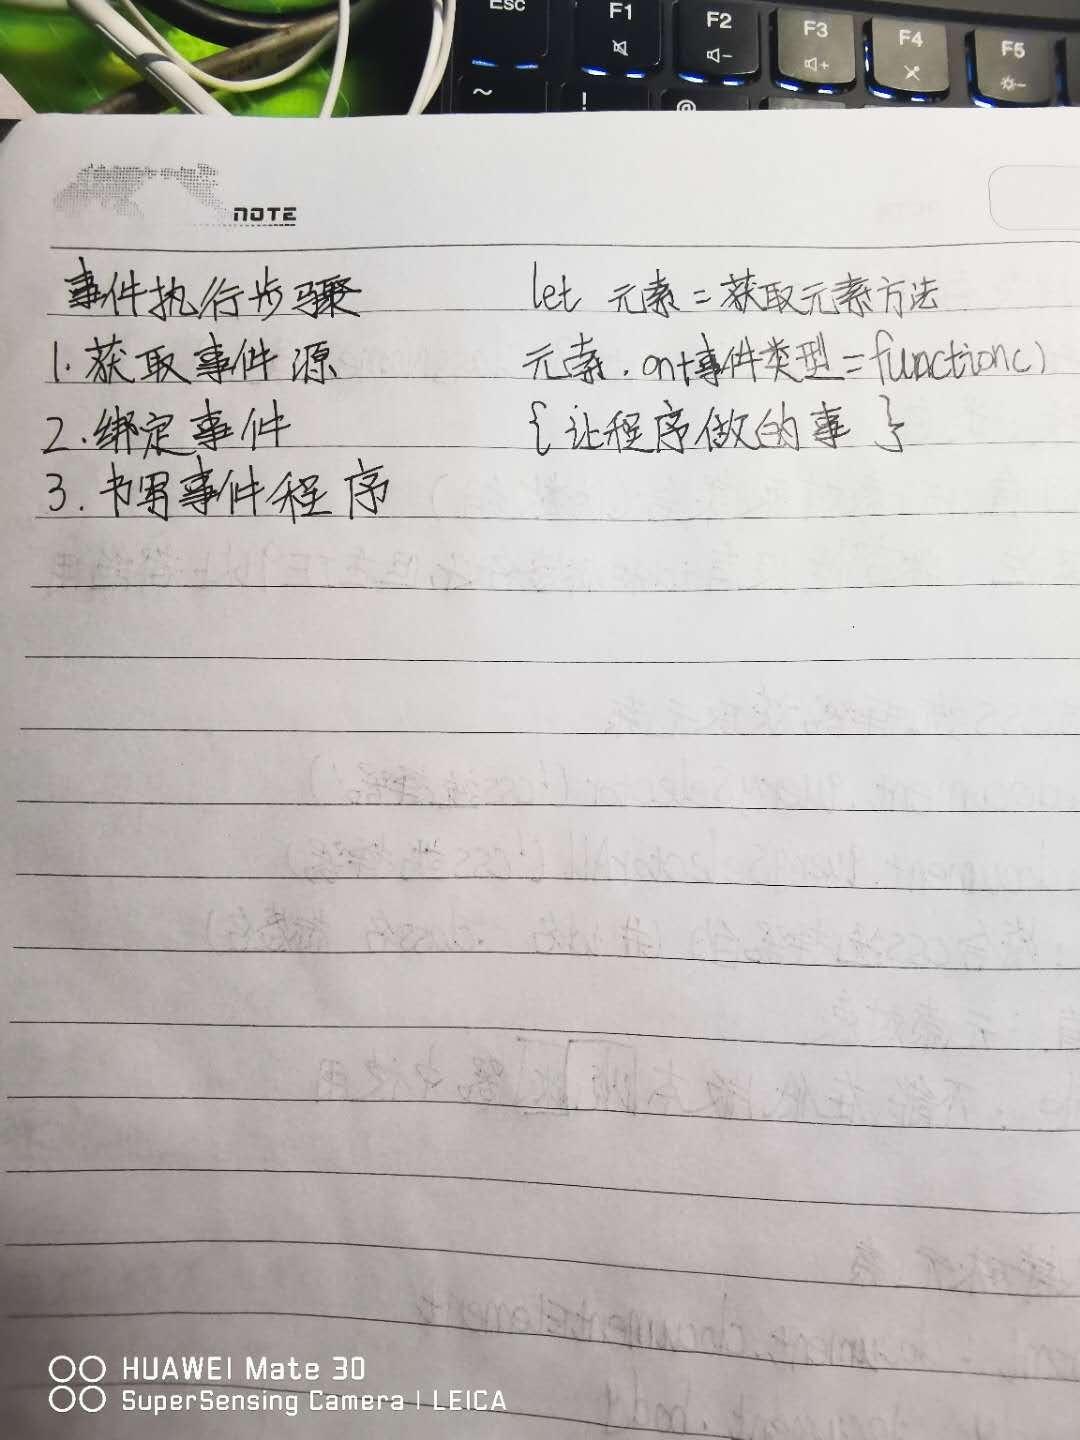 Esc F1 F2 F3 F4 F5
~ ! @
NOTE
事件执行步骤
1.获取事件源
2.绑定事件
3.书写事件程序
let 元素=获取元素方法
元素.on+事件类型=function()
{让程序做的事}
HUAWEI Mate 30
SuperSensing Camera | LEICA